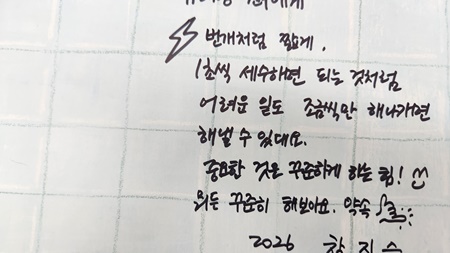 번개처럼 짧게.
1초씩 세수하면 되는 것처럼
어려운 일도 조금씩만 해나가면
해낼 수 있대요.
중요한 것은 꾸준하게 하는 힘!
뭐든 꾸준히 해보아요. 약속
2026